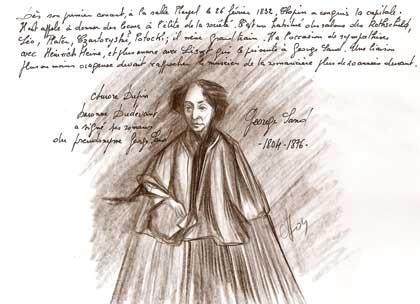 Dès son premier concert, à la salle Pleyel le 26 février 1832, Chopin a conquis la capitale.
Il est appelé à donner des leçons à l'élite de la société. Parfois habitué des salons des Rothschild,
Léo, Plater, Czartoryski, Potocki, il mène grand train. Il a l'occasion de sympathiser
avec Heinrich Heine, et plus encore avec Liszt qui le présente à George Sand. Une liaison
plus ou moins orageuse devait rapprocher le musicien de la romancière plus de
Aurore Dupin
baronne Dudevant
a signé ses romans
du pseudonyme George Sand
George Sand
-1804-1876-